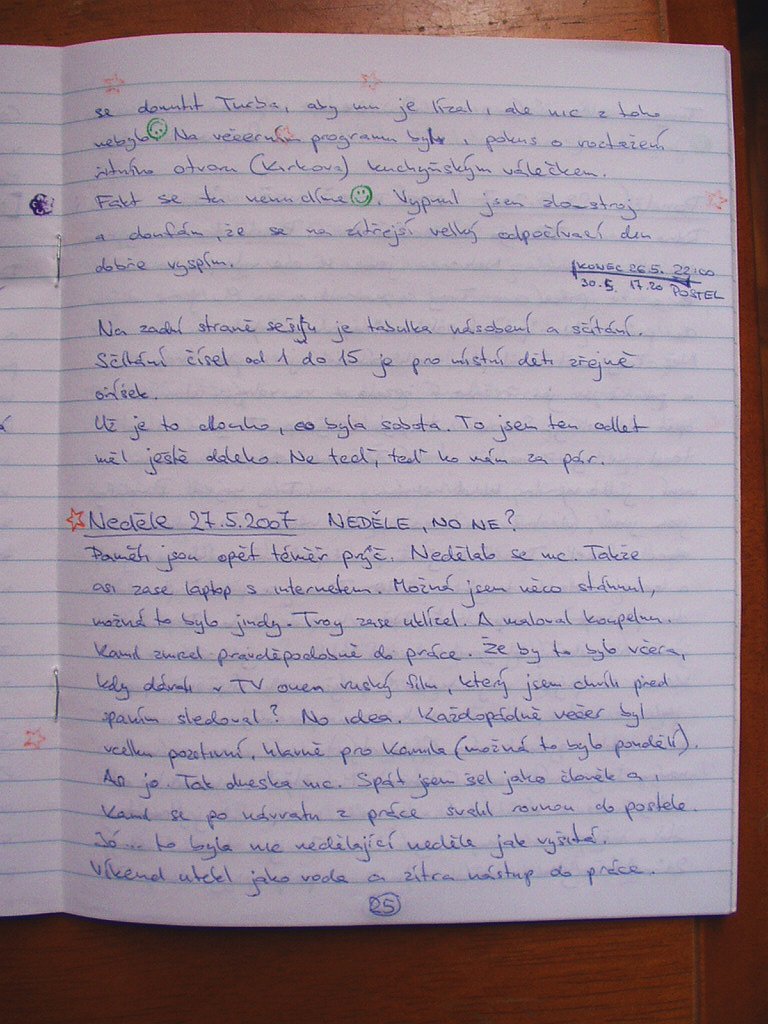 se donutit Turba, aby mu je lízal, ale nic z toho
nebylo Na večerním programu byl, pokus o roztažení
řitního otvoru (Kirkova) kuchyňským válečkem.
Fakt se tu nenudíme. Vypnul jsem zlo-stroj
a doufám, že se na zítřejší velký odpočívací den
dobře vyspím.
KONEC 26.5. 22:00
30.5. 17.20 POSTEL
Na zadní straně sešitu je tabulka násobení a sčítání.
Sčítání čísel od 1 do 15 je pro místní děti zřejmě
oříšek.
Už je to dlouho, co byla sobota. To jsem ten odlet
měl ještě daleko. Ne teď, teď ho mám za pár.
Neděle 27.5.2007 NEDĚLE, NO NE?
Paměti jsou opět téměř pryč. Nedělalo se nic. Takže
asi zase laptop s internetem. Možná jsem něco stáhnul,
možná to bylo jindy. Troy zase uklízel. A maloval koupelnu.
Kamil zmizel pravděpodobně do práce. Že by to bylo včera,
kdy dávali v TV onen ruský film, který jsem chvíli před
spaním sledoval? No idea. Každopádně večer byl
vcelku pozitivní, hlavně pro Kamila (možná to bylo pondělí).
Ao jo. Tak dneska nic. Spát jsem šel jako člověk a,
Kamil se po návratu z práce svalil rovnou do postele.
Jó... to byla nic nedělající neděle jak vyšitá.
Víkend utekl jako voda a zítra nástup do práce.
25